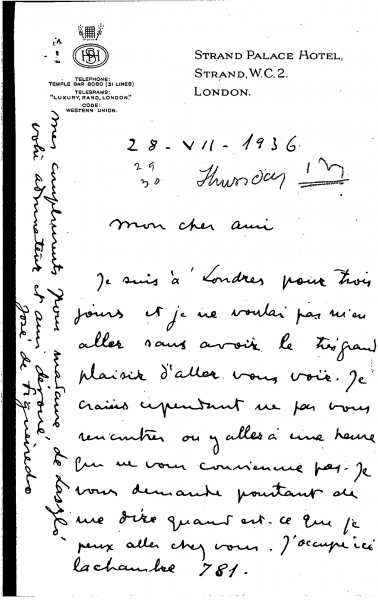 STRAND PALACE HOTEL,
STRAND, W.C.2.
LONDON.
TELEPHONE:
TEMPLE BAR 8080 (31 LINES)
TELEGRAMS:
"LUXURY, RAND, LONDON."
CODE:
WESTERN UNION.
28-VII-1936
29
30
Thursday
mon cher ami
Je suis à Londres pour trois
jours et je ne voulai pas m'en
aller sans avoir le très grand
plaisir d'aller vous voir. Je
crains cependant ne pas vous
rencontrer ou y aller à une heure
qui ne vous convienne pas. Je
vous demande pourtant de
me dire quand est-ce que je
peux aller chez vous. J'occupe ici
la chambre 781.
mes compliments pour madame de Laszló
votre admirateur et ami dévoué,
José de Figueiredo